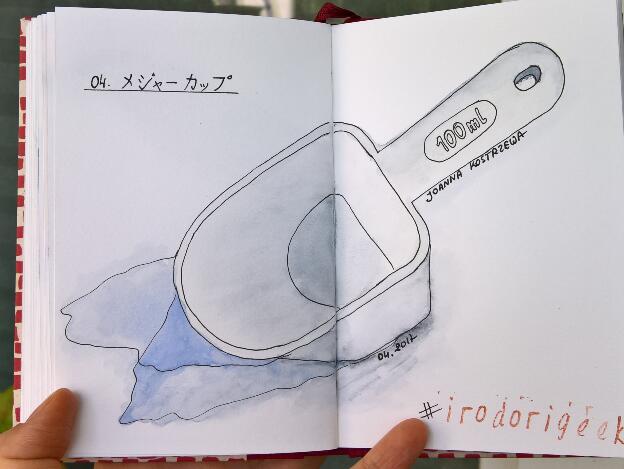 04. メジャーカップ
100ml
JOANNA KOSTRZEWA
04.2017
#irodorigeek